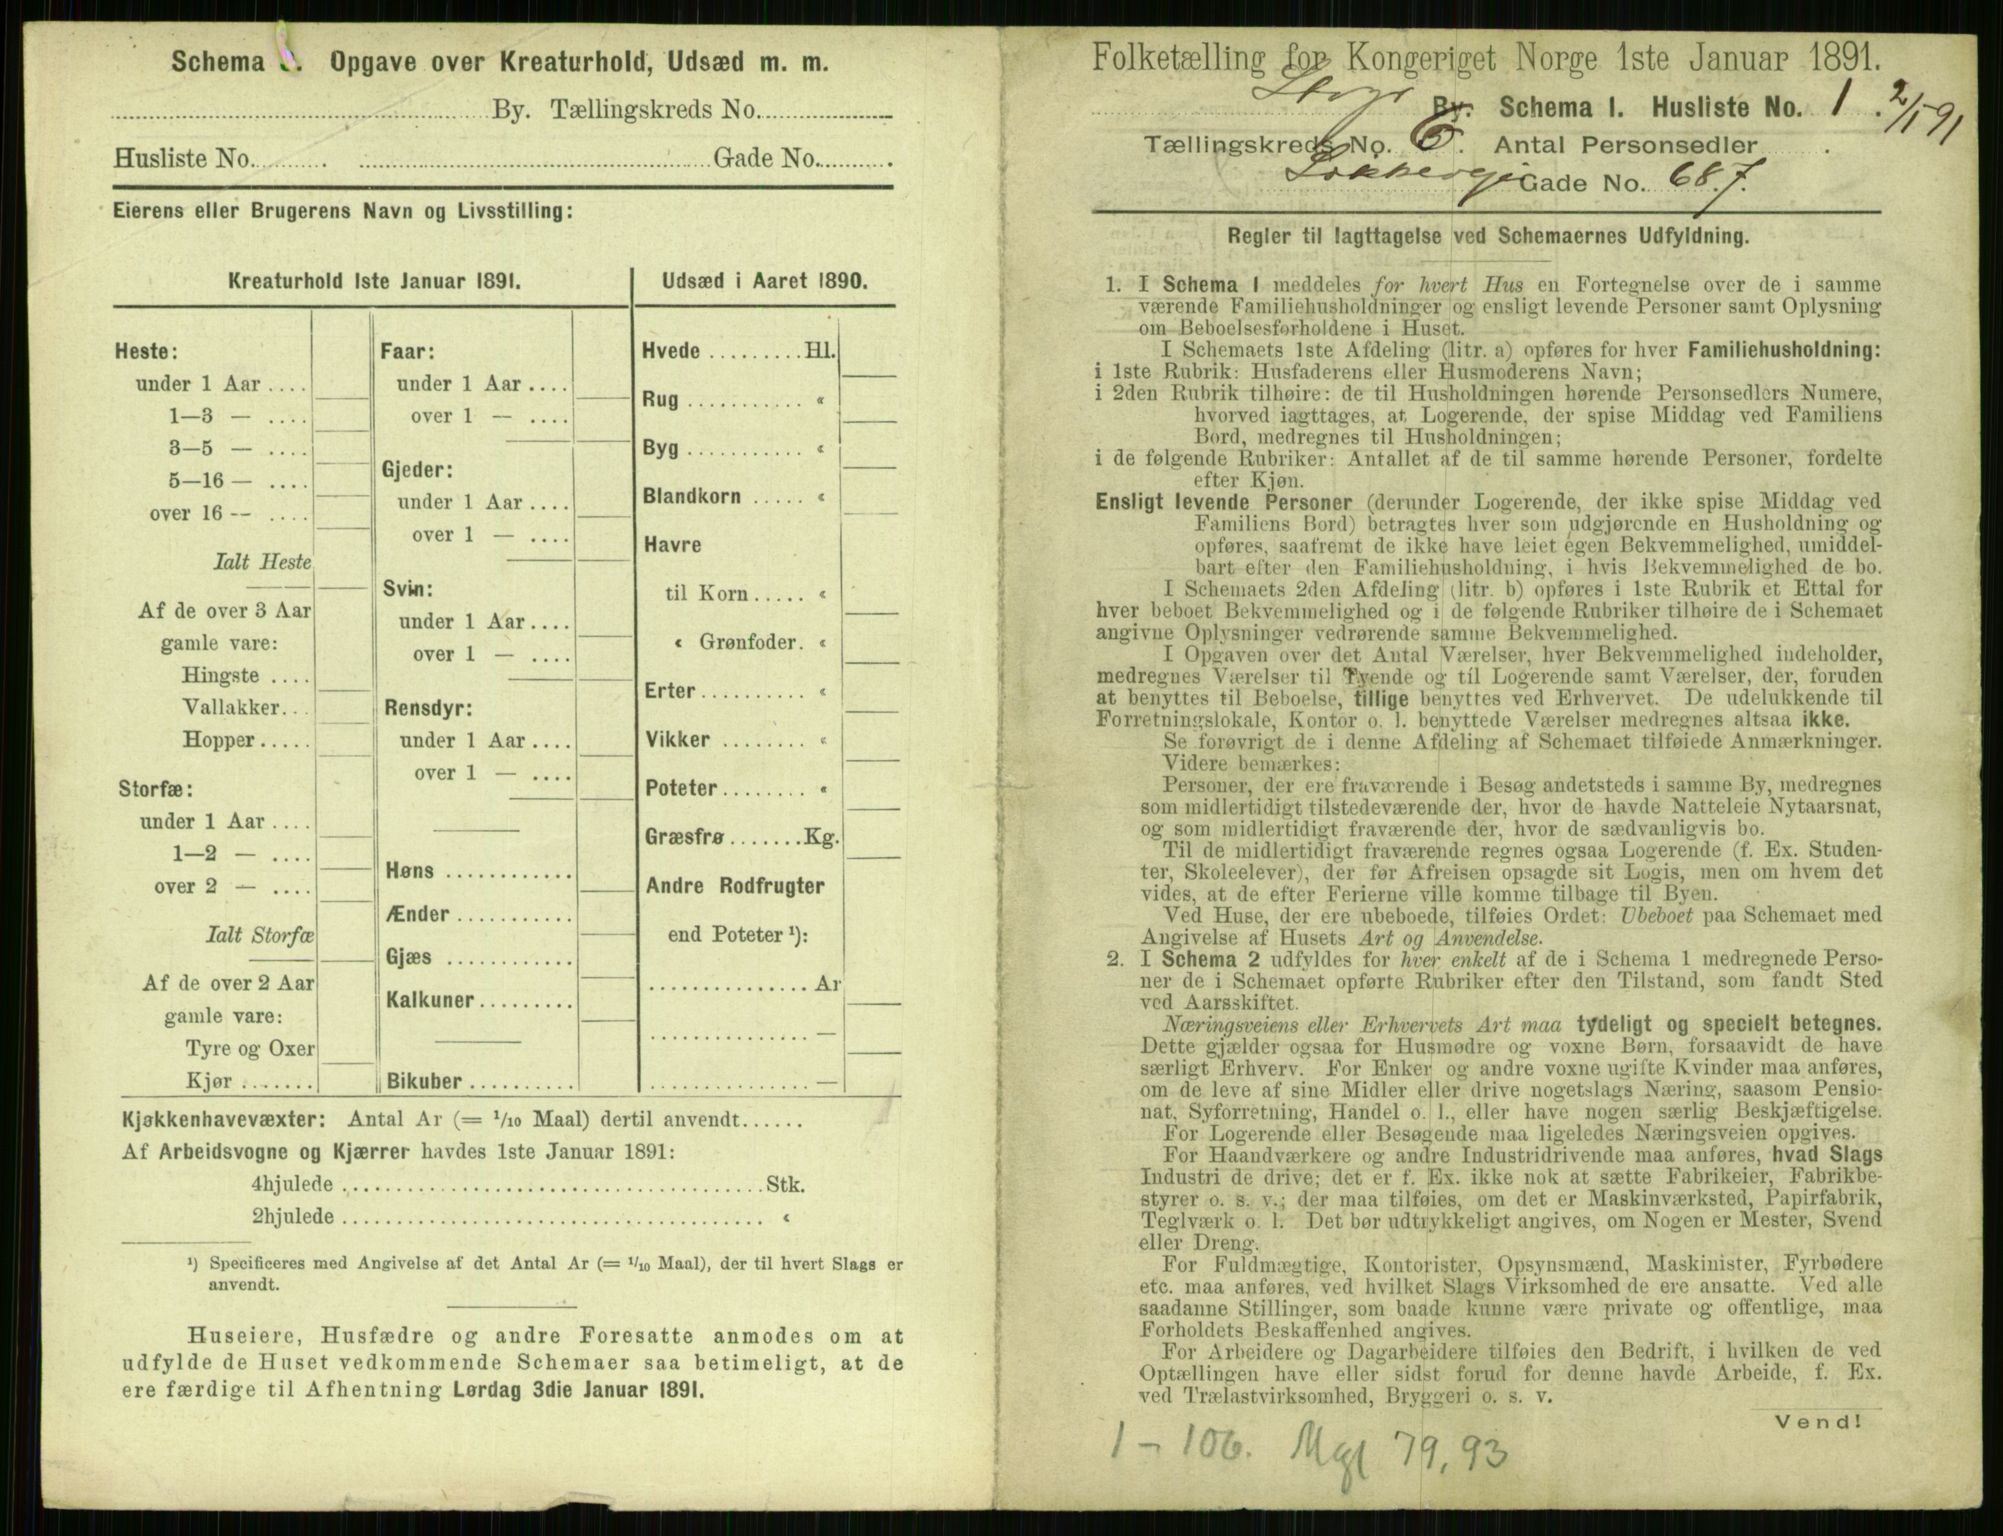 Schema 3. Opgave over Kreaturhold, Udsæd m. m.
By. Tællingskreds No.
Husliste No. Gade No.
Eierens eller Brugerens Navn og Livsstilling:
Kreaturhold 1ste Januar 1891.
Heste:
under 1 Aar....
1—3 — ....
3—5 — ....
5—16 — ....
over 16 -- ....
Ialt Heste
Af de over 3 Aar
gamle vare:
Hingste ....
Vallakker...
Hopper.....
Storfæ:
under 1 Aar....
1—2 — ....
over 2 — ....
Ialt Storfæ
Af de over 2 Aar
gamle vare:
Tyre og Oxer
Kjør .......
Faar:
under 1 Aar....
over 1 — ....
Gjeder:
under 1 Aar....
over 1 — ....
Svin:
under 1 Aar....
over 1 — ....
Rensdyr:
under 1 Aar....
over 1 — ....
Høns ............
Ænder...........
Gjæs ............
Kalkuner.........
Bikuber..........
Udsæd i Aaret 1890.
Hvede .........Hl.
Rug ........... «
Byg ........... «
Blandkorn ..... «
Havre
til Korn..... «
« Grønfoder. «
Erter.......... «
Vikker ........ «
Poteter........ «
Græsfrø.......Kg.
Andre Rodfrugter
end Poteter ¹):
............... Ar
............... —
............... —
Kjøkkenhavevæxter: Antal Ar (= 1/10 Maal) dertil anvendt......
Af Arbeidsvogne og Kjærrer havdes 1ste Januar 1891:
4hjulede .......................................Stk.
2hjulede ....................................... «
¹) Specificeres med Angivelse af det Antal Ar (= 1/10 Maal), der til hvert Slags er
anvendt.
Huseiere, Husfædre og andre Foresatte anmodes om at
udfylde de Huset vedkommende Schemaer saa betimeligt, at de
ere færdige til Afhentning Lørdag 3die Januar 1891.
Folketælling for Kongeriget Norge 1ste Januar 1891.
By. Schema I. Husliste No. 1. 2/1 91
Tællingskreds No. 6. Antal Personsedler .
Gade No. 687.
Regler til Iagttagelse ved Schemaernes Udfyldning.
1. I Schema I meddeles for hvert Hus en Fortegnelse over de i samme
værende Familiehusholdninger og ensligt levende Personer samt Oplysning
om Beboelsesforholdene i Huset.
I Schemaets 1ste Afdeling (litr. a) opføres for hver Familiehusholdning:
i 1ste Rubrik: Husfaderens eller Husmoderens Navn;
i 2den Rubrik tilhøire: de til Husholdningen hørende Personsedlers Numere,
hvorved iagttages, at Logerende, der spise Middag ved Familiens
Bord, medregnes til Husholdningen;
i de følgende Rubriker: Antallet af de til samme hørende Personer, fordelte
efter Kjøn.
Ensligt levende Personer (derunder Logerende, der ikke spise Middag ved
Familiens Bord) betragtes hver som udgjørende en Husholdning og
opføres, saafremt de ikke have leiet egen Bekvemmelighed, umiddel-
bart efter den Familiehusholdning, i hvis Bekvemmelighed de bo.
I Schemaets 2den Afdeling (litr. b) opføres i 1ste Rubrik et Ettal for
hver beboet Bekvemmelighed og i de følgende Rubriker tilhøire de i Schemaet
angivne Oplysninger vedrørende samme Bekvemmelighed.
I Opgaven over det Antal Værelser, hver Bekvemmelighed indeholder,
medregnes Værelser til Tyende og til Logerende samt Værelser, der, foruden
at benyttes til Beboelse, tillige benyttes ved Erhvervet. De udelukkende til
Forretningslokale, Kontor o. l. benyttede Værelser medregnes altsaa ikke.
Se forøvrigt de i denne Afdeling af Schemaet tilføiede Anmærkninger.
Videre bemærkes:
Personer, der ere fraværende i Besøg andetsteds i samme By, medregnes
som midlertidigt tilstedeværende der, hvor de havde Natteleie Nytaarsnat,
og som midlertidigt fraværende der, hvor de sædvanligvis bo.
Til de midlertidigt fraværende regnes ogsaa Logerende (f. Ex. Studen-
ter, Skoleelever), der før Afreisen opsagde sit Logis, men om hvem det
vides, at de efter Ferierne ville komme tilbage til Byen.
Ved Huse, der ere ubeboede, tilføies Ordet: Ubeboet paa Schemaet med
Angivelse af Husets Art og Anvendelse.
2. I Schema 2 udfyldes for hver enkelt af de i Schema 1 medregnede Perso-
ner de i Schemaet opførte Rubriker efter den Tilstand, som fandt Sted
ved Aarsskiftet.
Næringsveiens eller Erhvervets Art maa tydeligt og specielt betegnes.
Dette gjælder ogsaa for Husmødre og voxne Børn, forsaavidt de have
særligt Erhverv. For Enker og andre voxne ugifte Kvinder maa anføres,
om de leve af sine Midler eller drive nogetslags Næring, saasom Pensio-
nat, Syforretning, Handel o. l., eller have nogen særlig Beskjæftigelse.
For Logerende eller Besøgende maa ligeledes Næringsveien opgives.
For Haandværkere og andre Industridrivende maa anføres, hvad Slags
Industri de drive; det er f. Ex. ikke nok at sætte Fabrikeier, Fabrikbe-
styrer o. s. v.; der maa tilføies, om det er Maskinværksted, Papirfabrik,
Teglværk o. l. Det bør udtrykkeligt angives, om Nogen er Mester, Svend
eller Dreng.
For Fuldmægtige, Kontorister, Opsynsmænd, Maskinister, Fyrbødere
etc. maa anføres, ved hvilket Slags Virksomhed de ere ansatte. Ved alle
saadanne Stillinger, som baade kunne være private og offentlige, maa
Forholdets Beskaffenhed angives.
For Arbeidere og Dagarbeidere tilføies den Bedrift, i hvilken de ved
Optællingen have eller sidst forud for denne havde Arbeide, f. Ex.
ved Trælastvirksomhed, Bryggeri o. s. v.
Vend!
1 – 106. Mgl 79, 93